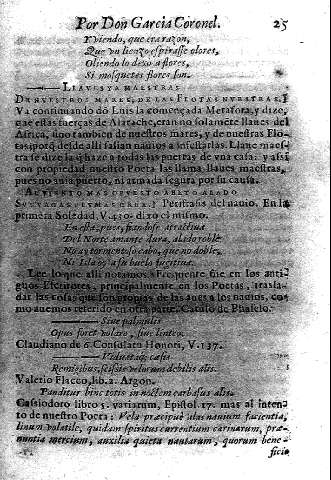 Por Don Garcia Coronel. 25
Y viendo, que era razon,
Que un lienço espirasse olores,
Oliendo lo dexo a flores,
Si mosquetes flores son.
LLAVES YA MAESTRAS
DE NUESTROS MARES, DE LAS FLOTAS NUESTRAS.]
Va continuando dõ Luis la começada Metafora, y dize,
que estas fuerças de Alarache, eran no solamẽte llaues del
Africa, sino tambien de nuestros mares, y de nuestras Flo-
tas: porq̃ desde alli salian nauios a infestarlas. Llaue maes-
tra se dize la q̃ haze a todas las puertas de vna casa: y assi
con propiedad nuestro Poeta las llama llaues maestras,
pues no auia puerto, ni armada segura por su causa.
] Peristrasis del nauio. En la
primera Soledad, V. 430. dixo el mismo.
En esta, pues, fiandose atractiua
Del Norte amante dura, alado roble
No ay tormentoso cabo, que no doble,
Ni Isla oy a su buelo fugitiua.
Lee lo que alli notamos. Frequente fue en los anti-
guos Escritores, principalmente en los Poetas, trasla-
dar las cosas que son propias de las aues a los nauios, co-
mo auemos referido en otra parte. Catulo de Phaselo.
Siue palmulis
Opus foret volare, siue linteo.
Claudiano de 6. Consulatu Honori, V. 137.
Viduataq; cæsis
Remigibus, scissis velorum debilis alis.
Valerio Flacco, lib. 2. Argon.
Panditur hinc totis in noctem carbasus alis.
Cassiodoro libro 5. variarum, Epistol. 17. mas al inten-
to de nuestro Poeta: Vela præcipuè alas nauium facientia,
linum volatile, quidam spiritus currentium carinarum, præ-
nuntia mercium, auxilia quieta nautarum, quorum bene-
ficio